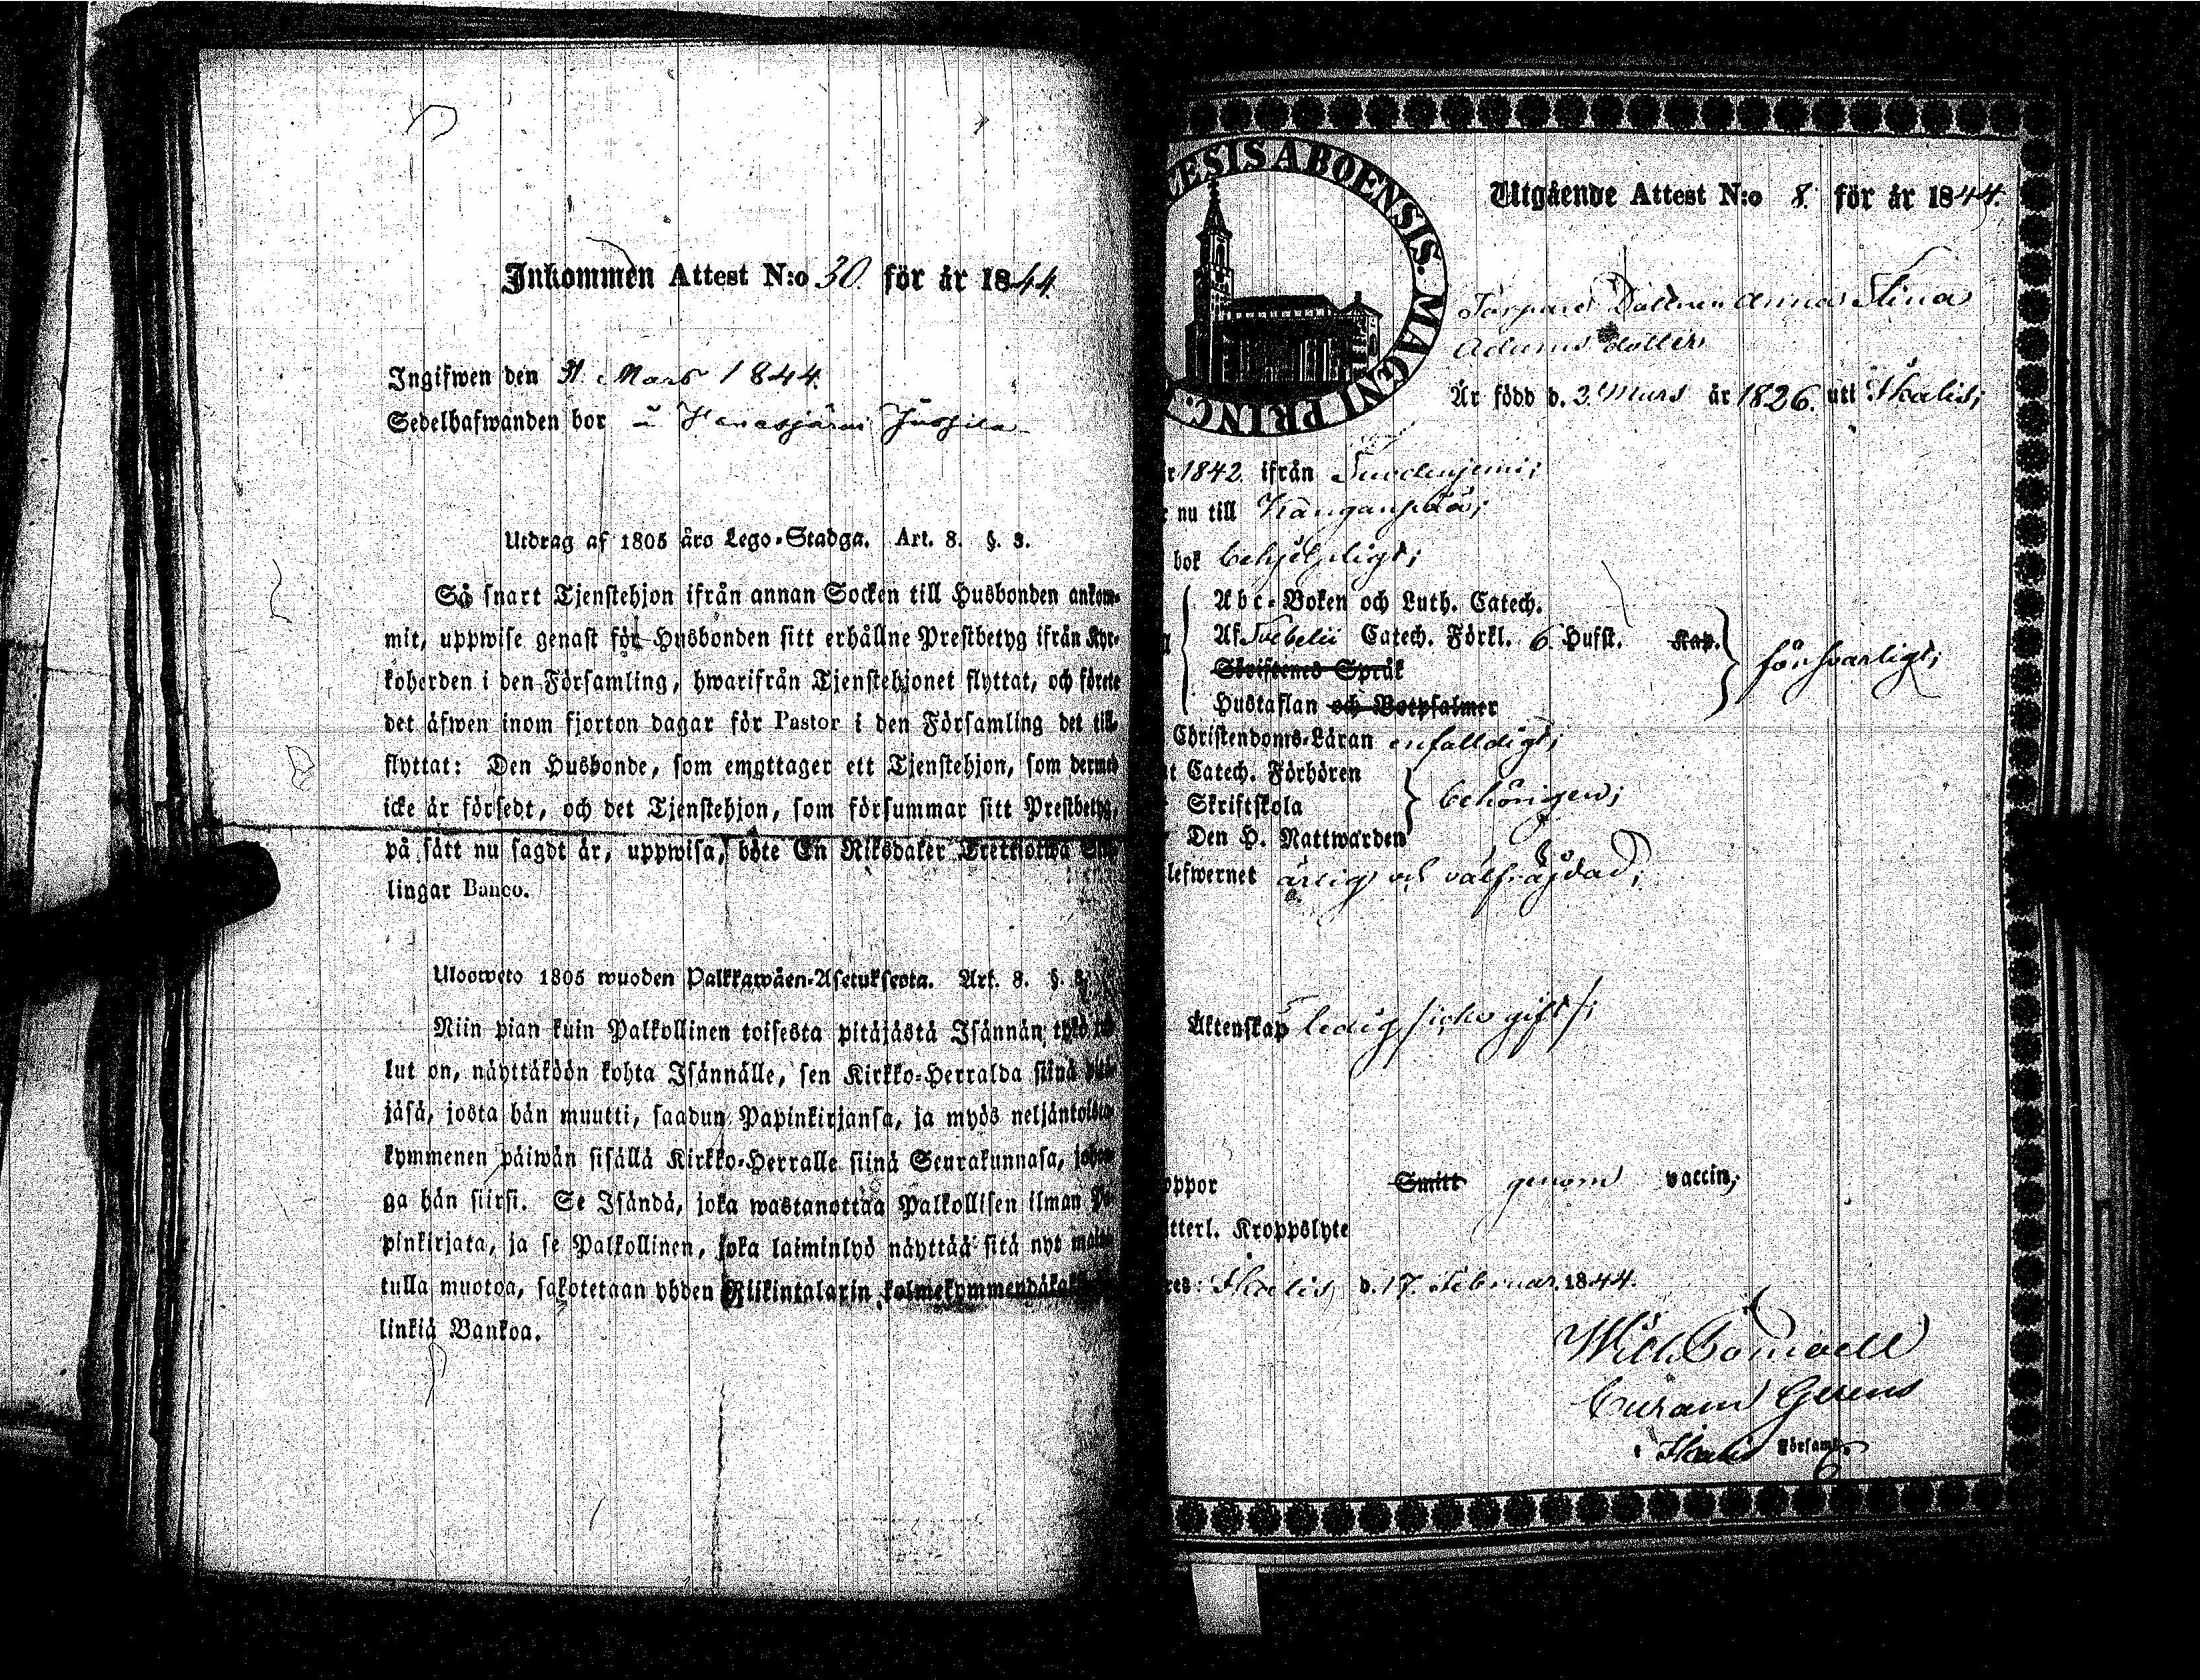 Inkommen Attest N:o 30. för år 1844.
Ingifwen den 31. Mars 1844.
Sedelhafwanden bor
Utdrag af 1805 års Lego-Stadga. Art. 8. §. 3.
Så snart Tjenstehjon ifrån annan Socken till Husbonden ankom-
mit, uppwise genast för Husbonden sitt erhållne Prestbetyg ifrån Kyr-
koherden i den Församling, hwarifrån Tjenstehjonet flyttat, och förete
det äfwen inom fjorton dagar för Pastor i den Församling det till-
flyttat: Den Husbonde, som emottager ett Tjenstehjon, som dermed
icke är försedt, och det Tjenstehjon, som försummar sitt Prestbetyg,
på sätt nu sagdt är, uppwisa, böte En Riksdaler Trettiotwå
lingar Banco.
Ulosweto 1805 wuoden Palkkawäen-Asetuksesta. Art. 8. §.
Niin pian kuin Palkollinen toisesta pitäjästä Isännän tykö
lut on, näyttäköön kohta Isännälle, sen Kirkko-Herralda siinä
jäsä, josta hän muutti, saadun Papinkirjansa, ja myös neljäntoista-
kymmenen päiwän sisällä Kirkko-Herralle siinä Seurakunnasa, johon-
ga hän siirsi. Se Isändä, joka wastanottaa Palkollisen ilman Pa-
pinkirjata, ja se Palkollinen, joka laiminlyö näyttää sitä nyt
tulla muotoa, sakotetaan yhden Riikintalarin
linkiä Bankoa.
ESIS ABOENSIS. MAGNI PRINC.
Utgående Attest N:o 8. för år 1844.
Dottren Anna Stina
Adams dotter
Är född d. 3. Mars år 1826. uti Ikalis;
1842 ifrån
nu till Kanganpää;
bok behjelpligt;
Abc-Boken och Luth. Catech.
Af Svebelii Catech. Förkl. 6. Hufst. Kap.
Skriftenes Språk
Hustaflan och Botpsalmer
försvarligt;
Christendoms-Läran enfalldigt;
Catech. Förhören
Skriftskola
Den H. Nattwarden
behörigen;
lefwernet ärlig och välfräjdad;
Äktenskap ledig /icke gift/;
oppor Smitt genom vaccin;
tterl. Kroppslyte
res: Ikalis d. 17. Februar. 1844.
Wilh.
Curam Gerens
i Ikalis Församl.